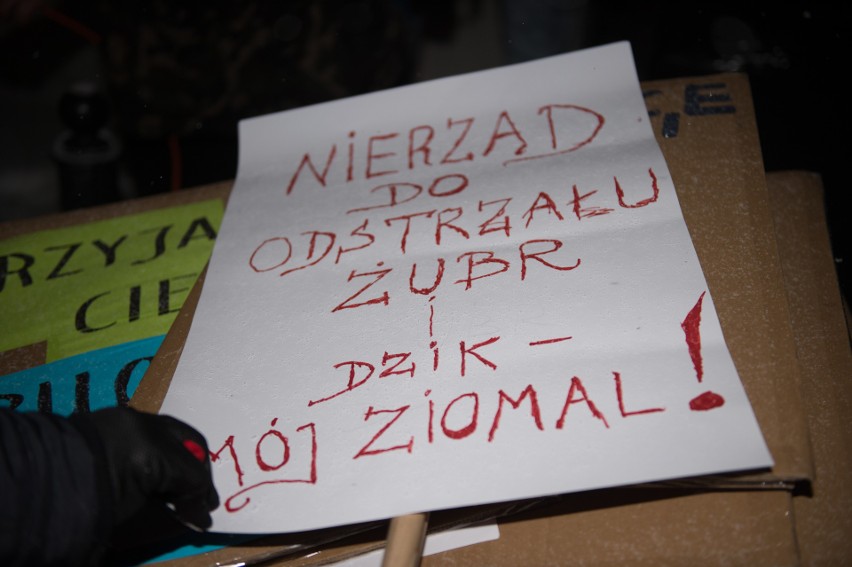 NiERZĄD
DO
ODSTRZAŁU
ŻUBR
i
DZiK –
MÓJ ZiOMAL!
RZYJA
CIE